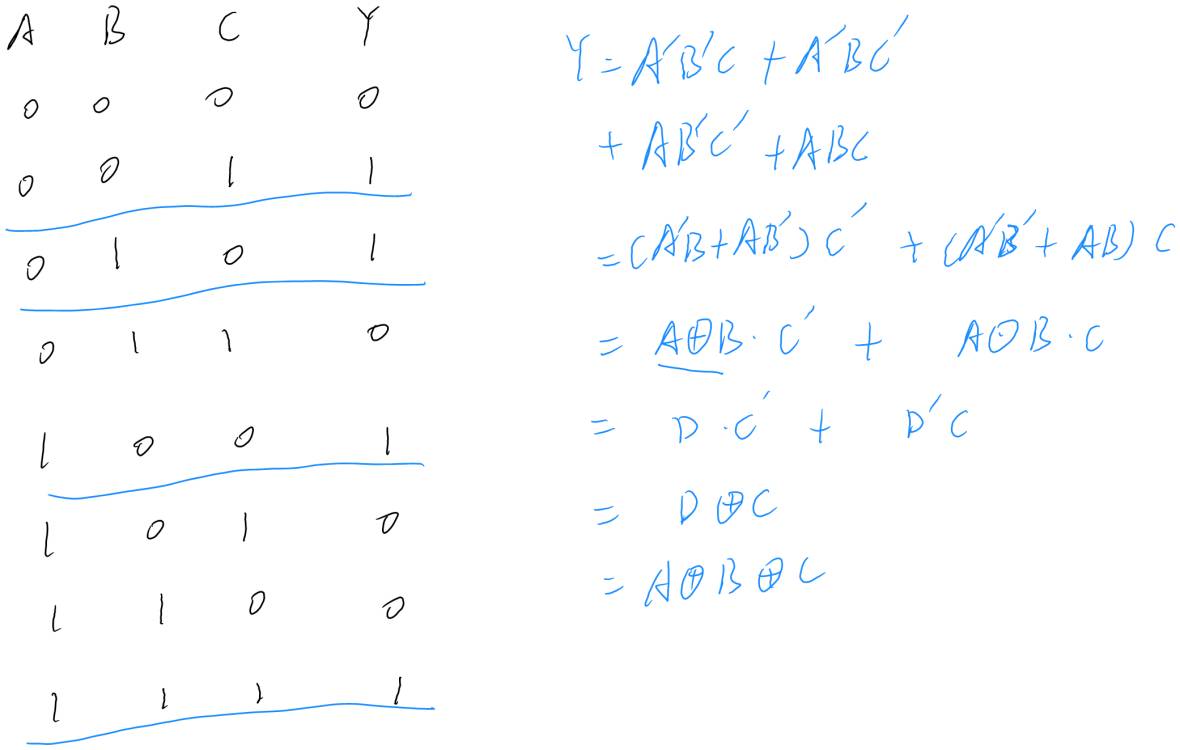 A B C Y
0 0 0 0
0 0 1 1
0 1 0 1
0 1 1 0
1 0 0 1
1 0 1 0
1 1 0 0
1 1 1 1
Y = A'B'C + A'BC'
+ AB'C' + ABC
= (A'B + AB') C' + (A'B' + AB) C
= A⊕B · C' + A⊙B · C
= D · C' + D'C
= D ⊕ C
= A ⊕ B ⊕ C